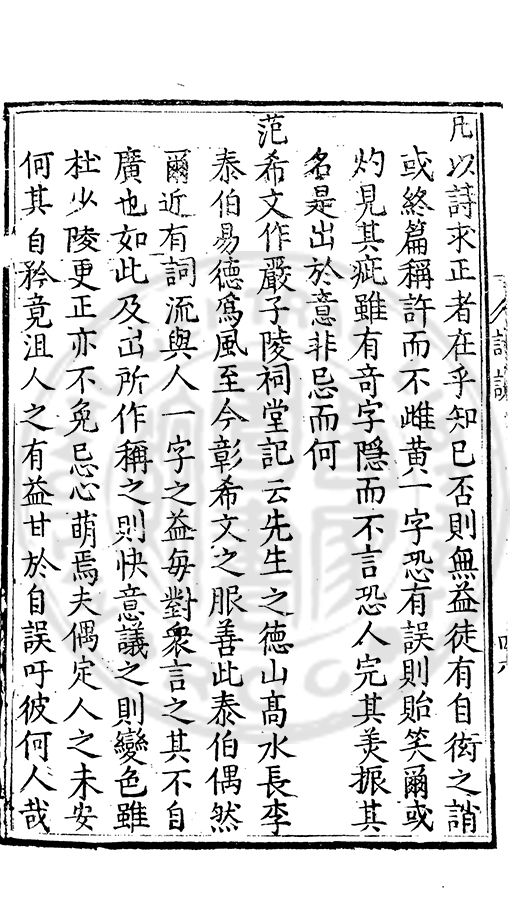 凡以詩求正者在乎知已否則無益徒有自衒之誚
或終篇稱許而不雌黃一字恐有誤則貽笑爾或
灼見其疵雖有奇字隱而不言恐人完其美振其
名是出於意非忌而何
范希文作嚴子陵祠堂記云先生之德山高水長李
泰伯易德爲風至今彰希文之服善此泰伯偶然
爾近有詞流與人一字之益每對衆言之其不自
廣也如此及出所作稱之則快意議之則變色雖
杜少陵更正亦不免忌心萌焉夫偶定人之未安
何其自矜竟沮人之有益甘於自誤吁彼何人哉